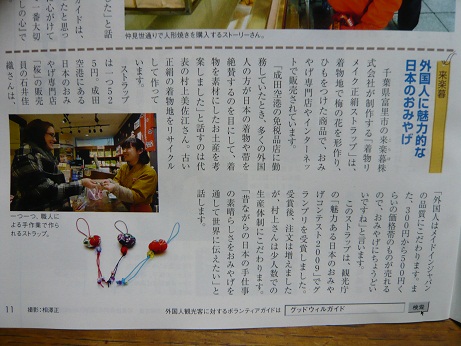 仲見世通りで人形焼きを購入するストーリーさん。
来楽暮
外国人に魅力的な
日本のおみやげ
千葉県富里市の来楽暮株
式会社が制作する『着物リ
メイク正絹ストラップ』は、
着物地で梅の花を形作り、
ひもをつけた商品で、おみ
やげ専門店やインターネッ
トで販売されています。
「成田空港の免税品店に勤
務していたとき、多くの外国
人の方が日本の着物や帯を
絶賛するのを目にして、着
物を素材にしたお土産を考
案しました」と話すのは代
表の村上美佐江さん。古い
正絹の着物地をリサイクル
して作って
います。
ストラップ
は一つ５２
５円。成田
空港にある
日本のおみ
やげ専門店
「桜」の販売
員の石井佳
織さんは、
「外国人はメイドインジャパン
の品質にこだわります。ま
た、３００円から５００円く
らいの価格帯のものが売れる
ので、おみやげにちょうどい
いですね」と言います。
このストラップは、観光庁
の「魅力ある日本のおみや
げコンテスト２００９」でグ
ランプリを受賞しました。
受賞後、注文は増えました
が、村上さんは少人数での
生産体制にこだわります。
「昔ながらの日本の手仕事
の素晴らしさをおみやげを
通して世界に伝えたい」と
話します。
一つ一つ、職人に
よる手作業で作ら
れるストラップ。
11
撮影：相澤正
外国人観光客に対するボランティアガイドは
グッドウィルガイド
検索